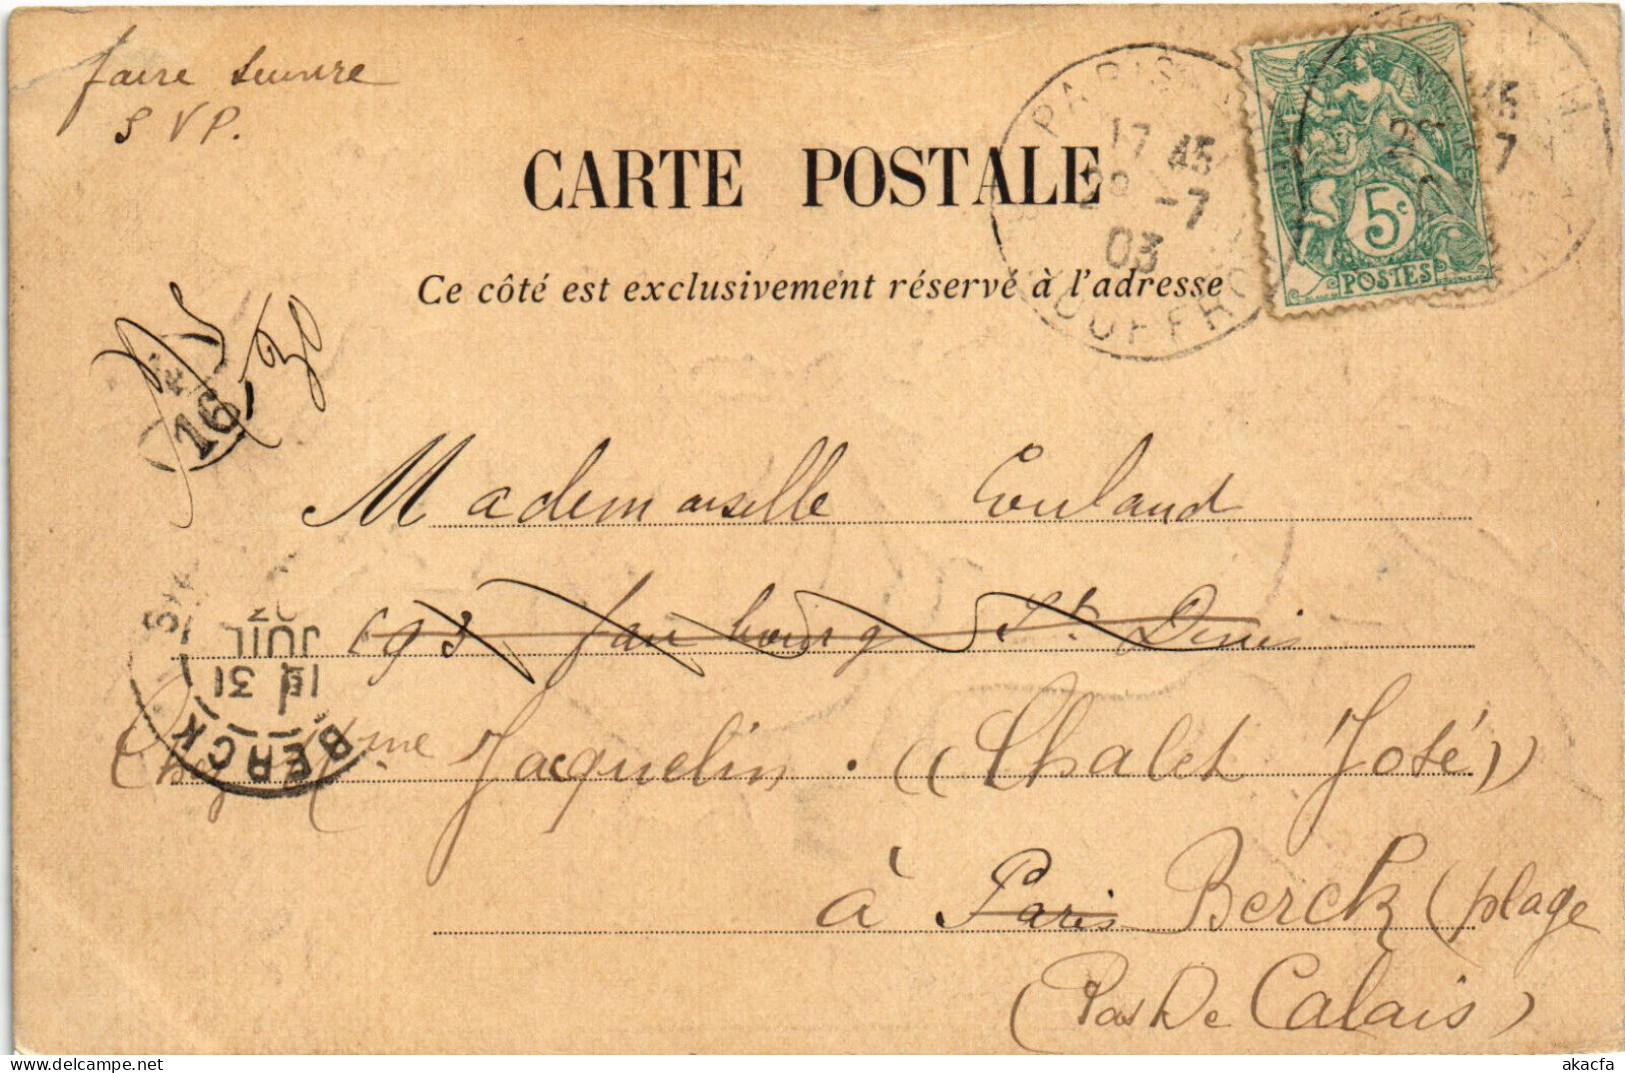 faire suivre
S V P.
PARIS
17 45
28 -7
03
5c
POSTES
CARTE POSTALE
Ce côté est exclusivement réservé à l'adresse
16
30
Mademoiselle Couland
193 faubourg St Denis
Chez Mme Jacquelin. ((Chalet José))
BERCK
31
JUIL
03
à Paris Berck (plage
(Pas De Calais)
akacfa